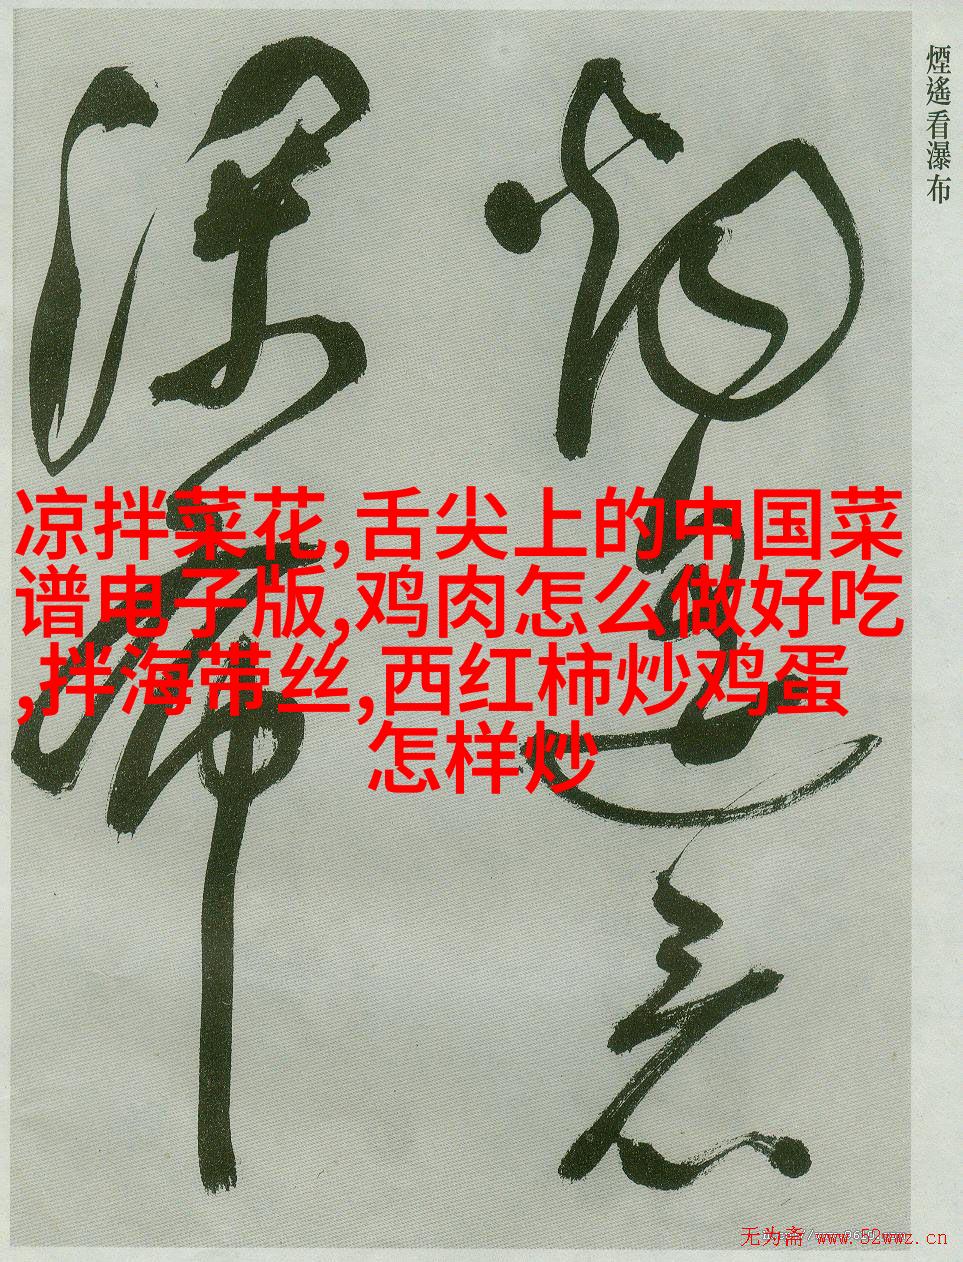 煙遙看瀑布
煙遙看
瀑布
凉拌菜花,舌尖上的中国菜
谱电子版,鸡肉怎么做好吃
,拌海带丝,西红柿炒鸡蛋
怎样炒
无为斋 www.52wwz.cn